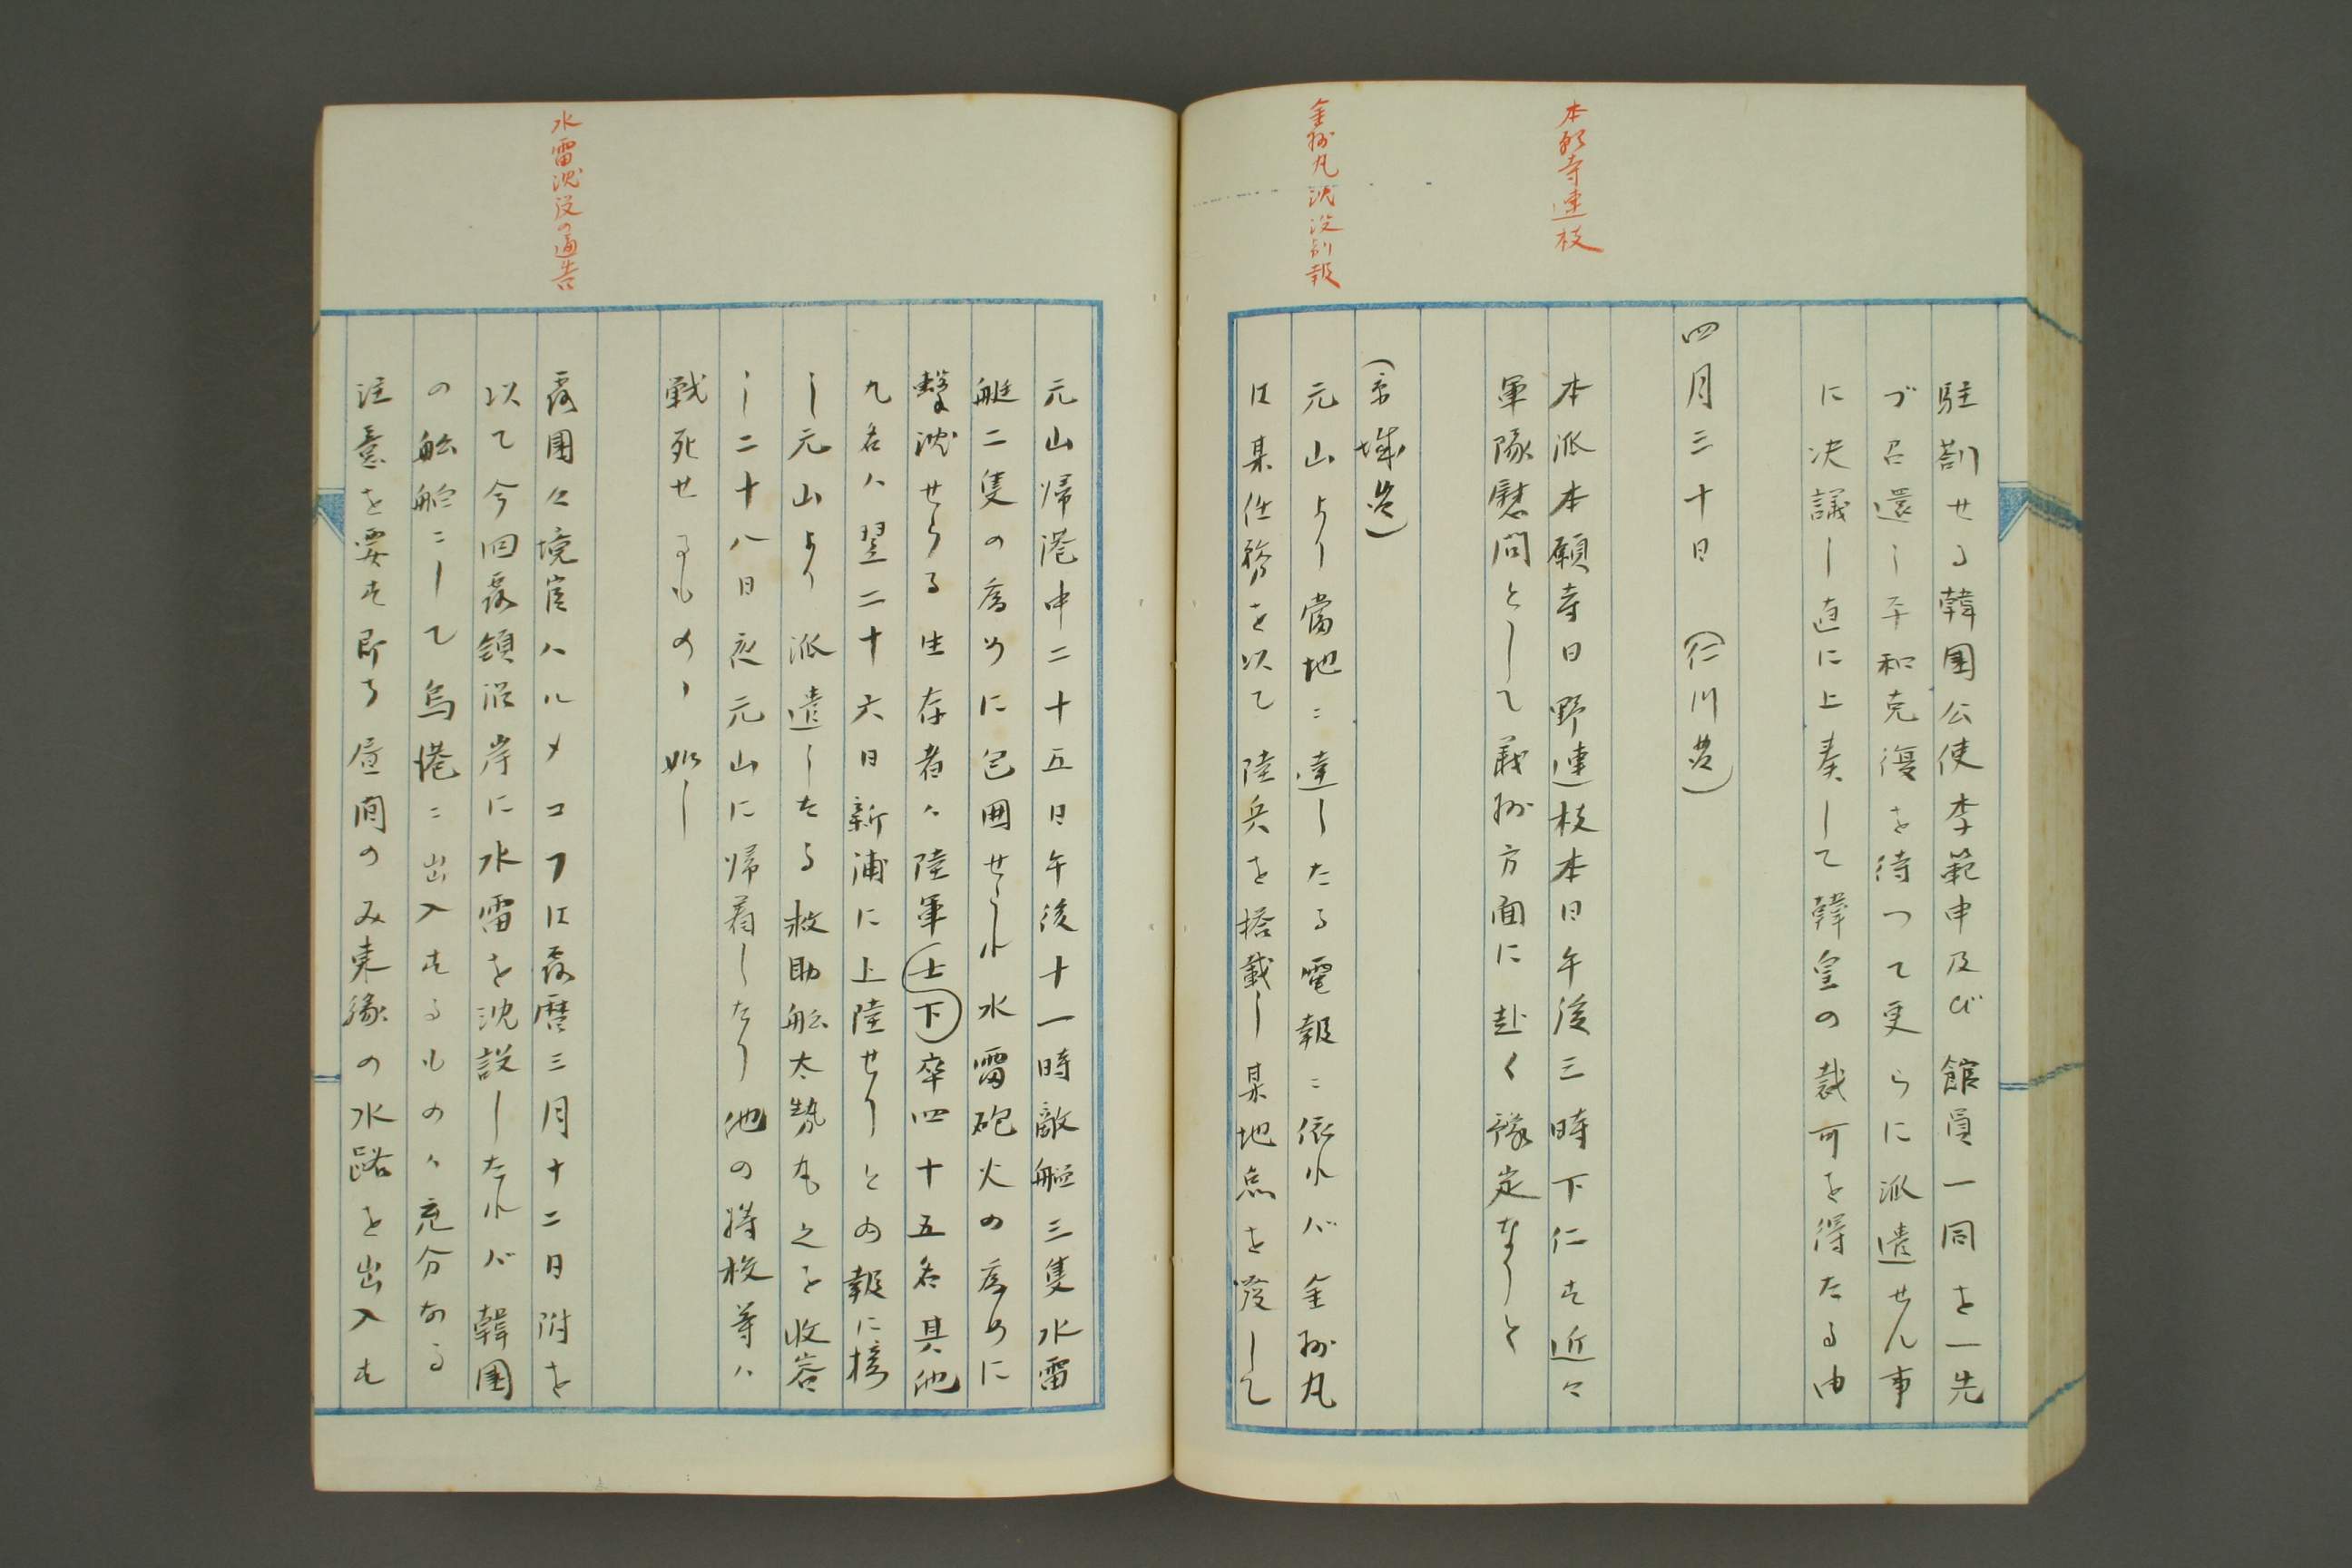 本願寺連枝
金州丸沈没別報
駐劄せる韓国公使李範申及び館員一同を一先
づ召還し平和克復を待つて更らに派遣せん事
に决議し直に上奏して韓皇の裁可を得たる由
四月三十日 (仁川發)
本派本願寺日野連枝本日午後三時下仁す近々
軍隊慰問として義州方面に赴く豫定なりと
(京城發)
元山より當地ニ達したる電報ニ依れバ金州丸
は某任務を以て陸兵を搭載し某地点を發して
水雷沈設の通告
元山帰港中二十五日午後十一時敵艦三隻水雷
艇二隻の為めに包囲せられ水雷砲火の為めに
撃沈せらる生存者ハ陸軍士下卒四十五名其他
九名ハ翌二十六日新浦に上陸せりとの報に接
し元山より派遣したる救助船太勢丸之を收容
し二十八日夜元山に帰着したり他の将校等ハ
戦死せるものゝ如し
露國々境官ハルメコフは露暦三月十二日附を
以て今回露領沿岸に水雷を沈設したれバ韓国
の船舶ニして烏港ニ出入するものハ充分なる
注意を要す即ち昼間のみ東緣の水路を出入す